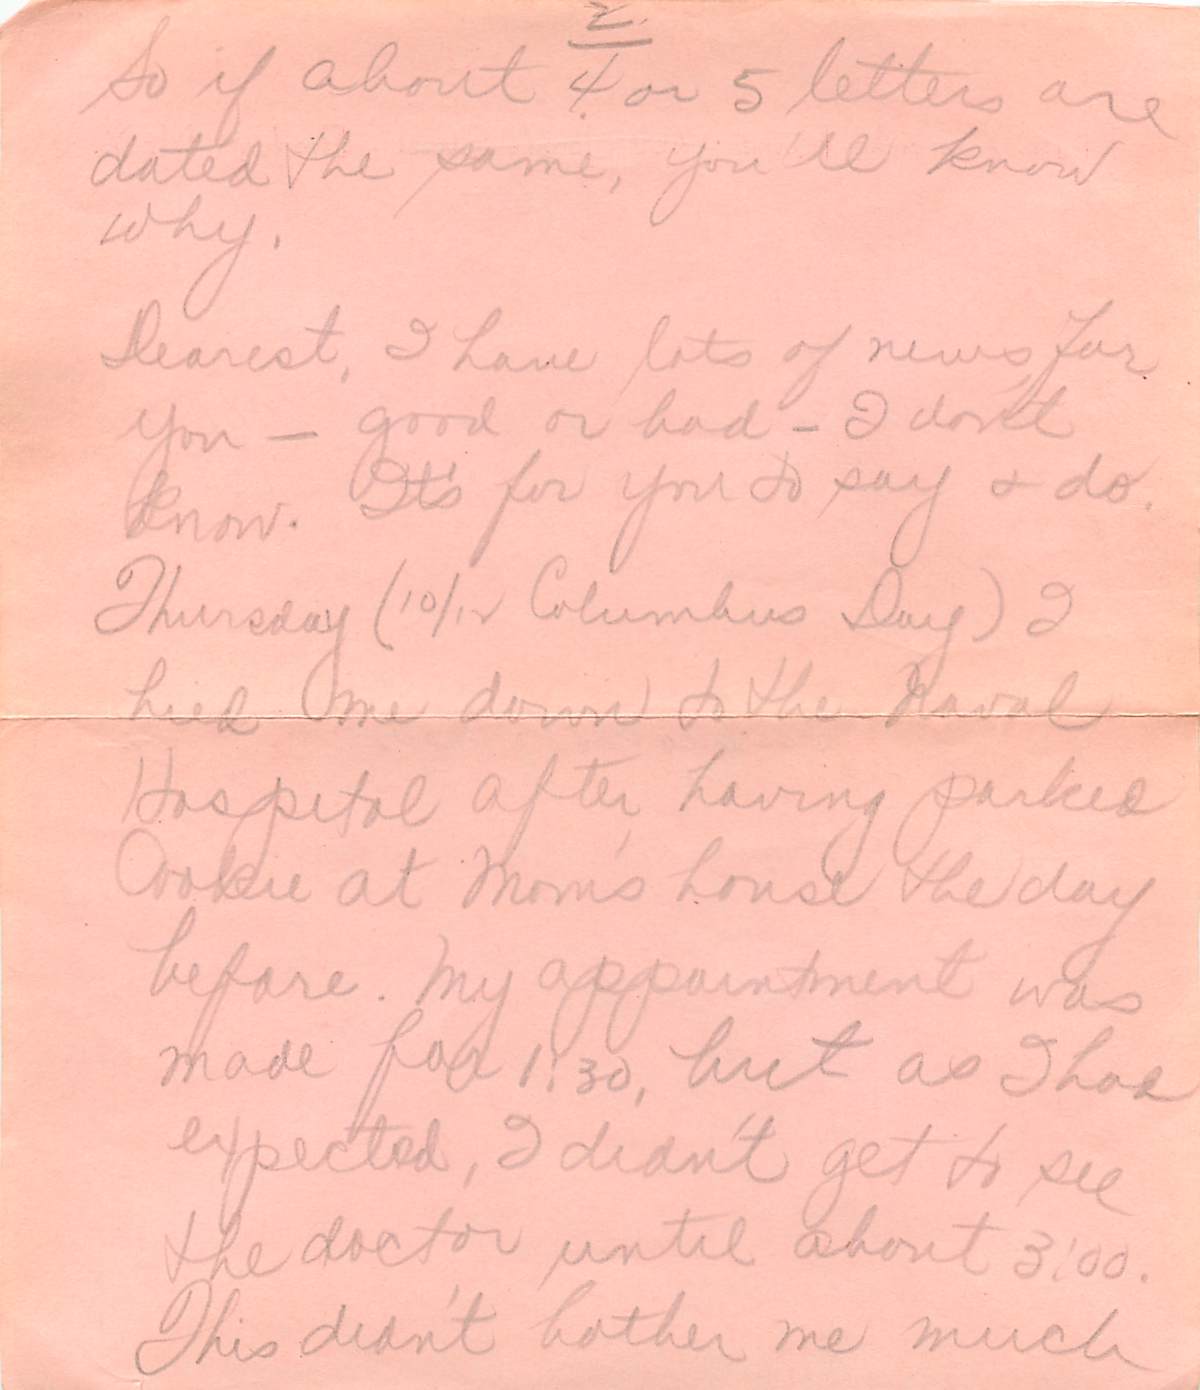 2.
So if about 4 or 5 letters are
dated the same, you'll know
why.
Dearest, I have lots of news for
you — good or bad - I don't
know. It's for you to say & do.
Thursday (10/12 Columbus Day) I
hied me down to the Naval
Hospital after having parked
Cookie at Mom's house the day
before. My appointment was
made for 1:30, but as I had
expected, I didn't get to see
the doctor until about 3:00.
This didn't bother me much